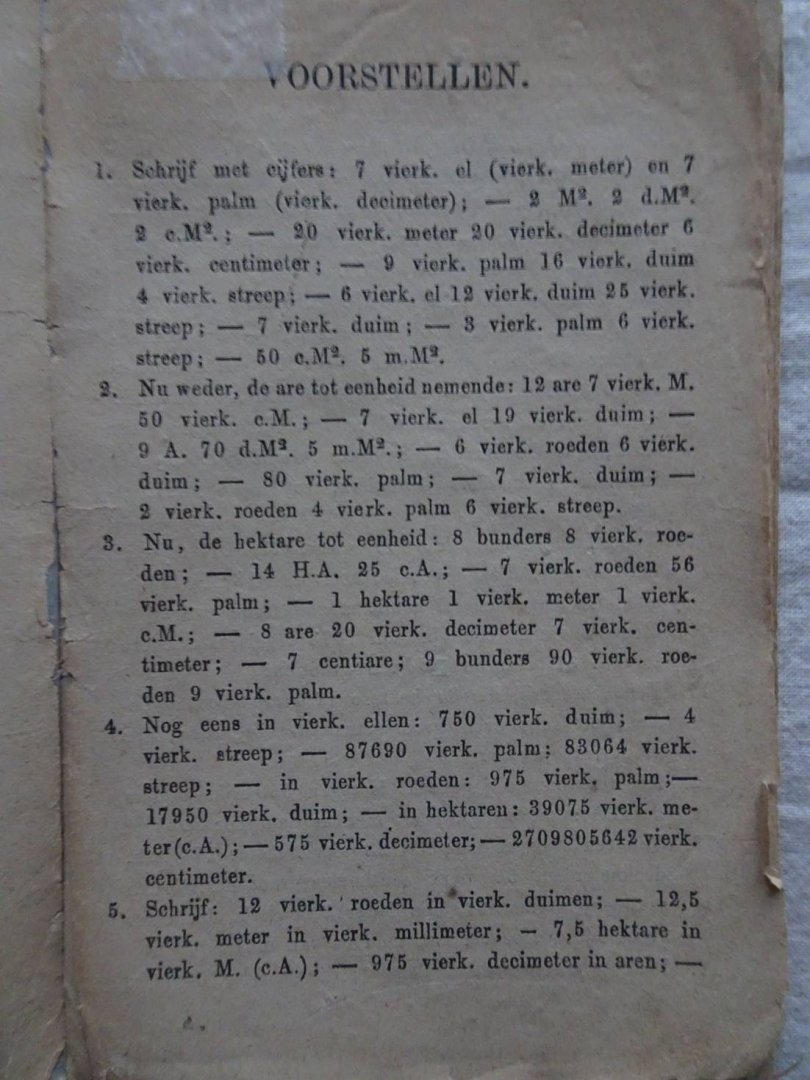 VOORSTELLEN.
1. Schrijf met cijfers: 7 vierk. el (vierk. meter) en 7
vierk. palm (vierk. decimeter); — 2 M². 2 d.M².
2 c.M².; — 20 vierk. meter 20 vierk. decimeter 6
vierk. centimeter; — 9 vierk. palm 16 vierk. duim
4 vierk. streep; — 6 vierk. el 12 vierk. duim 25 vierk.
streep; — 7 vierk. duim; — 3 vierk. palm 6 vierk.
streep; — 50 c.M². 5 m.M².
2. Nu weder, de are tot eenheid nemende: 12 are 7 vierk. M.
50 vierk. c.M.; — 7 vierk. el 19 vierk. duim; —
9 A. 70 d.M². 5 m.M².; — 6 vierk. roeden 6 vierk.
duim; — 80 vierk. palm; — 7 vierk. duim; —
2 vierk. roeden 4 vierk. palm 6 vierk. streep.
3. Nu, de hektare tot eenheid: 8 bunders 8 vierk. roe-
den; — 14 H.A. 25 c.A.; — 7 vierk. roeden 56
vierk. palm; — 1 hektare 1 vierk. meter 1 vierk.
c.M.; — 8 are 20 vierk. decimeter 7 vierk. cen-
timeter; — 7 centiare; 9 bunders 90 vierk. roe-
den 9 vierk. palm.
4. Nog eens in vierk. ellen: 750 vierk. duim; — 4
vierk. streep; — 87690 vierk. palm; 83064 vierk.
streep; — in vierk. roeden: 975 vierk. palm;—
17950 vierk. duim; — in hektaren: 39075 vierk. me-
ter (c.A.); — 575 vierk. decimeter; — 2709805642 vierk.
centimeter.
5. Schrijf: 12 vierk. roeden in vierk. duimen; — 12,5
vierk. meter in vierk. millimeter; — 7,5 hektare in
vierk. M. (c.A.); — 975 vierk. decimeter in aren; —